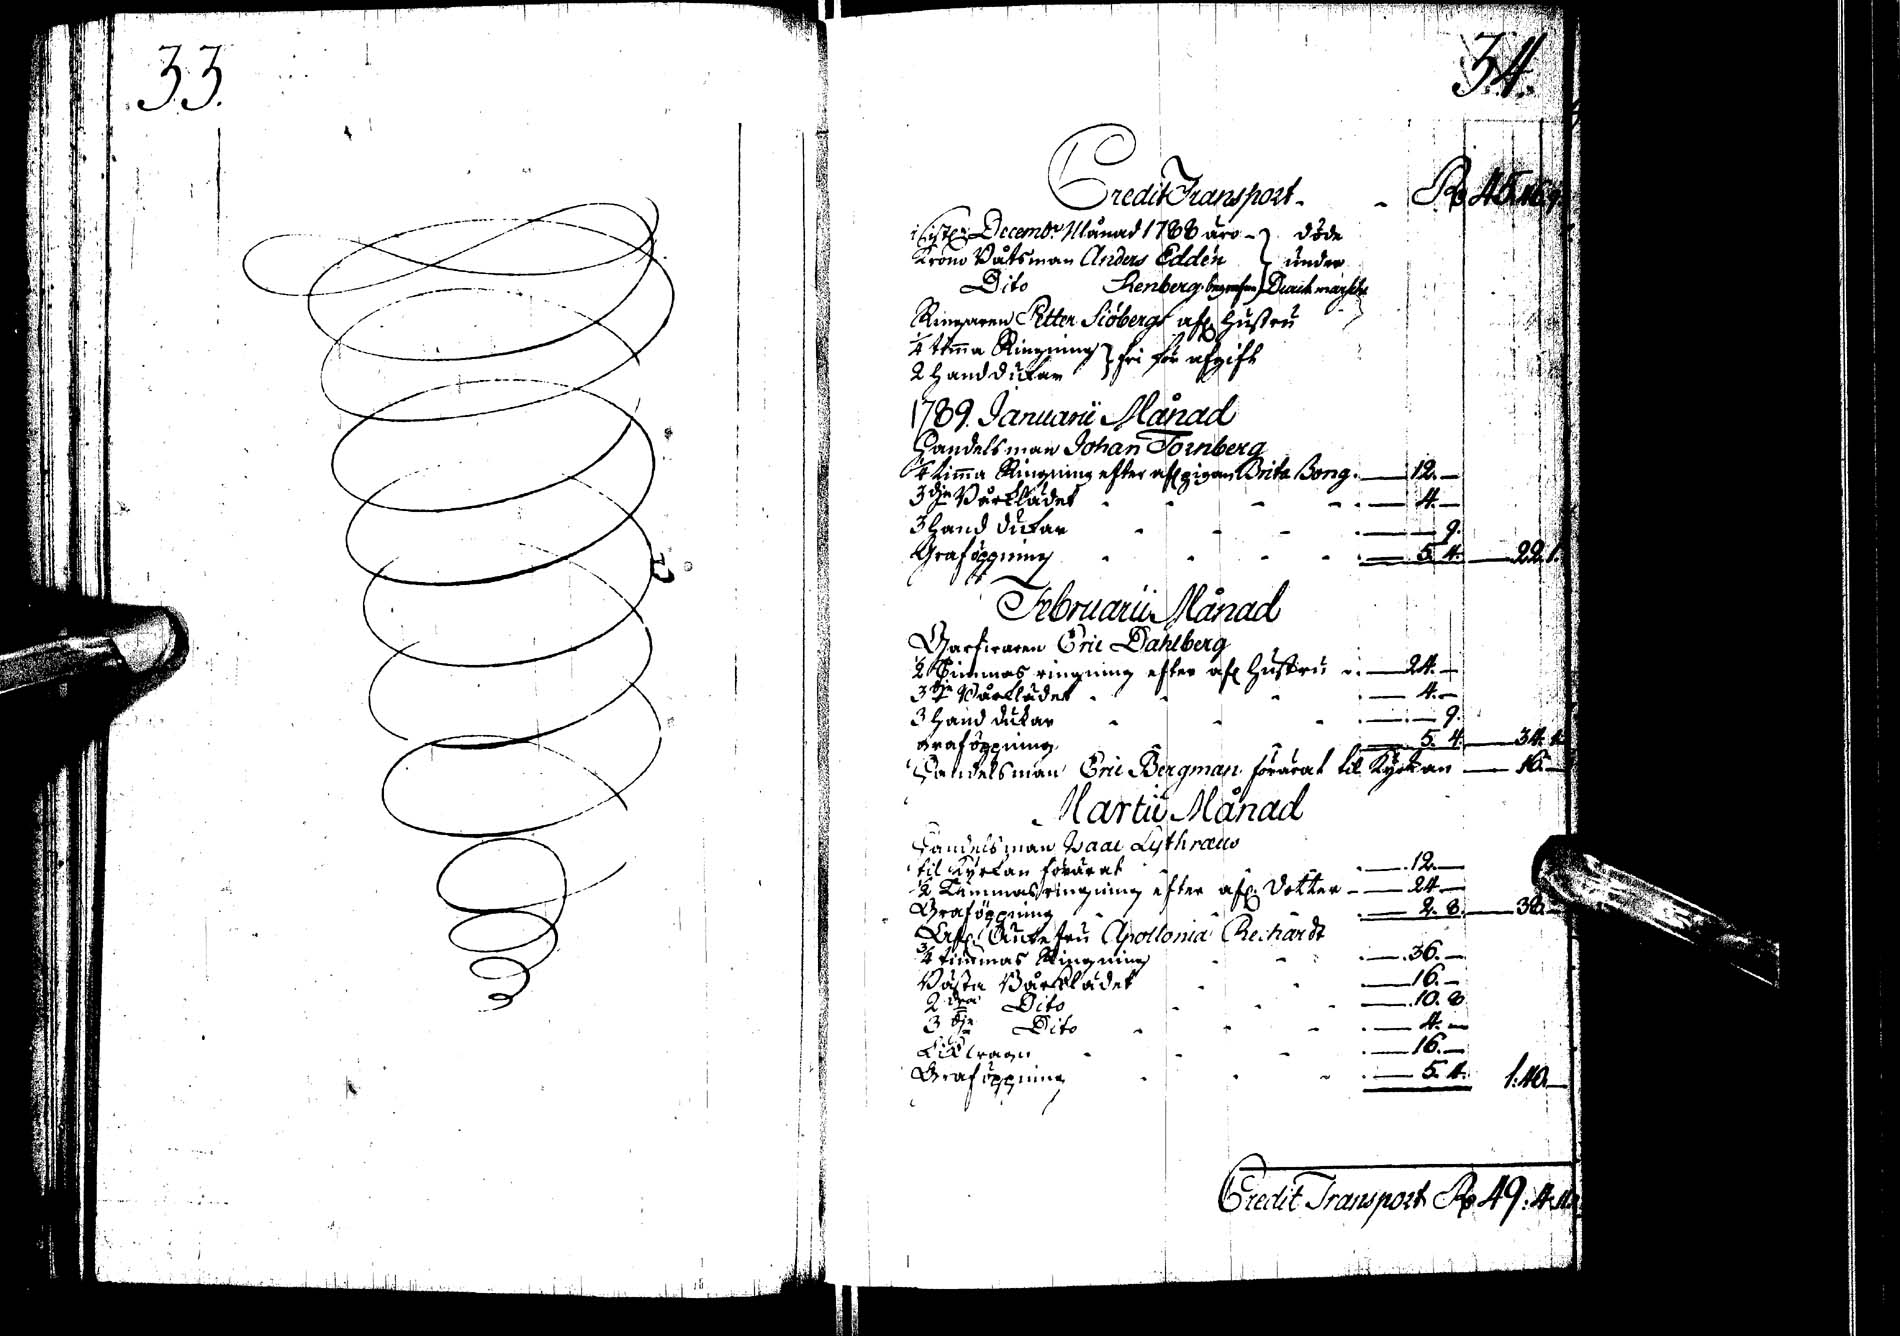 33.
34.
Credit Transport - - Rd 45.16.9.
Decembr Månad 1788 äro - döde
Krono Båtsman Anders Eddén under
Dito Stenberg
Ringaren Petter Siöbergs afl. Hustru
1/4 tima Ringning fri för afgift
2 Handdukar
1789. Januarii Månad
Handelsman Johan Tornberg
1/4 tima Ringning efter afl. pigan Brita Bong. 12. -
3dje Bårklädet 4. -
3 Hand dukar 9.
Graföppning 5. 4. 22. 1.
Februarii Månad
Garfvaren Eric Dahlberg
1/2 Timmas ringning efter afl. Hustru 24. -
3dje Bårklädet 4. -
3 Hand dukar 9.
Graföppning 5. 4. 34. 1.
Handelsman Eric Bergman förärat til Kyrkan 16. -
Martii Månad
Handelsman Isaac Lythræus
til Kyrkan förärat 12. -
1/2 Timmas ringning efter afl. Dotter - 24. -
Graföppning 2. 8. 38.
Enke fru Apollonia
3/4 timmas Ringning 36. -
Bästa Bårklädet 16. -
2dra Dito 10. 8
3dje Dito 4. -
16. -
Graföppning 5. 4. 1. 40. -
Credit Transport Rd 49. 4.